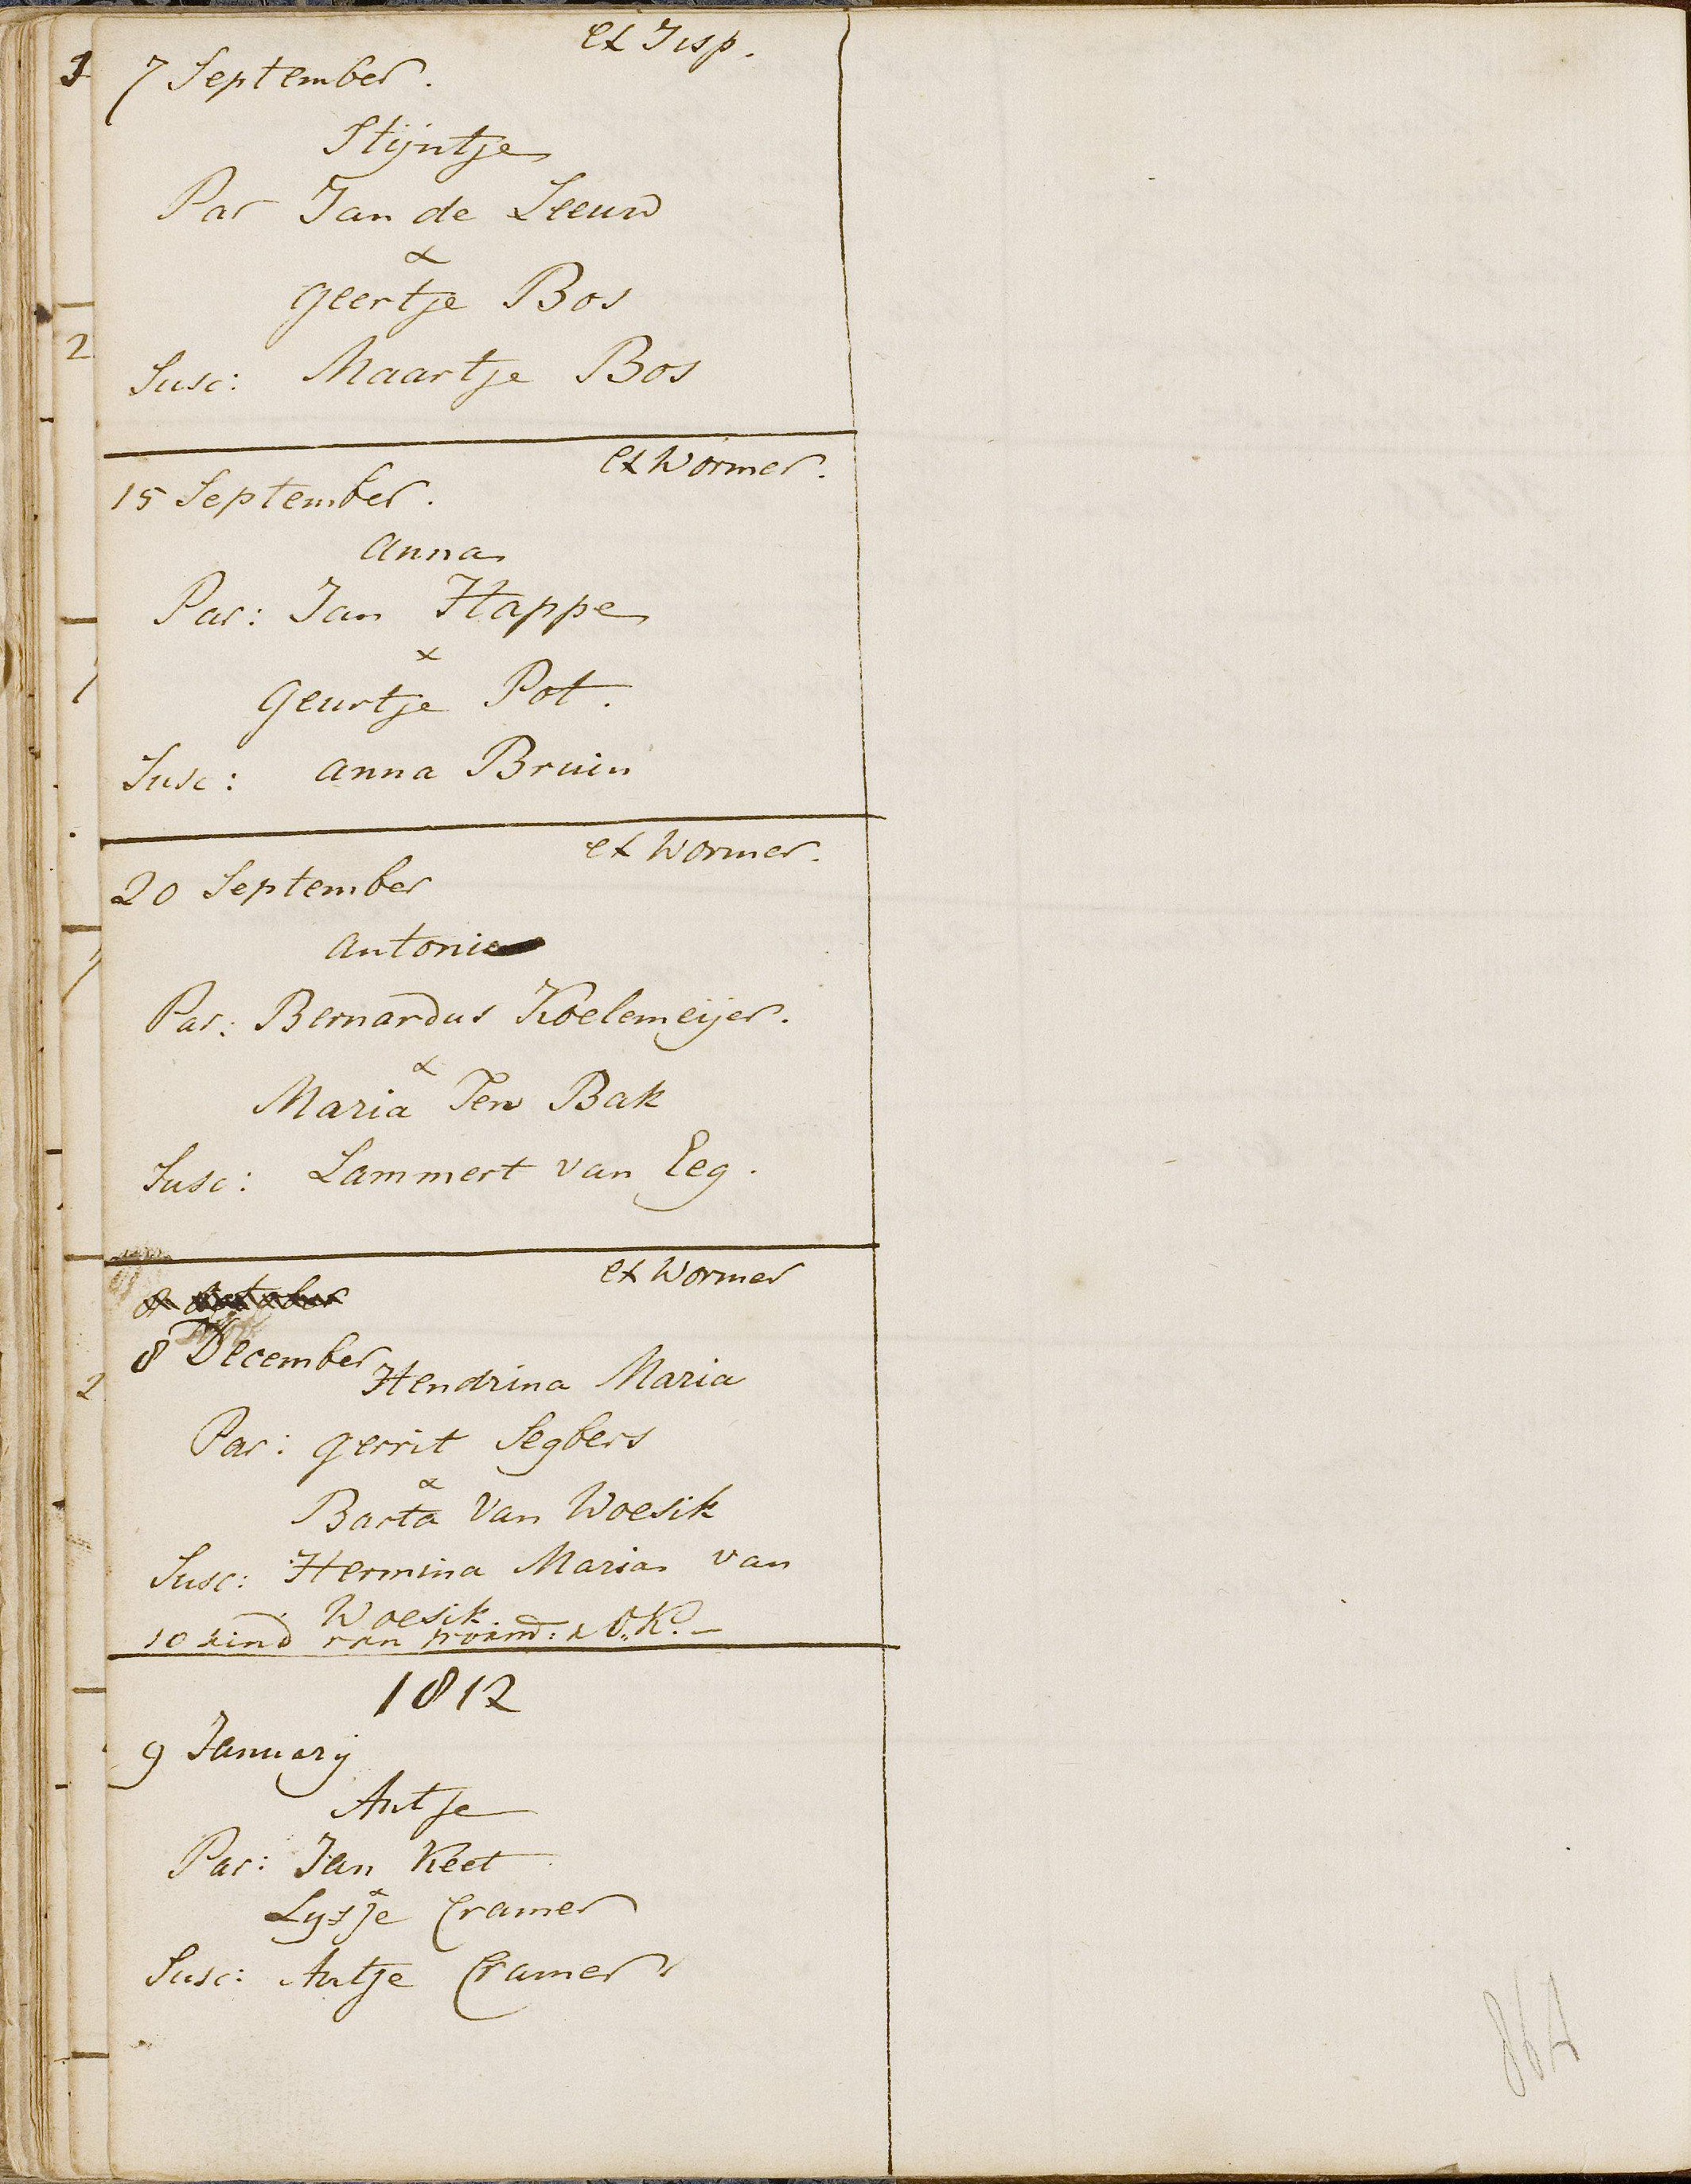 ex Jisp.
7 September.
Stijntje
Par Jan de Leeuw
&
Geertje Bos
Susc: Maartje Bos
ex Wormer.
15 September.
Anna
Par: Jan Happe
x
Geurtje Pot.
Susc: Anna Bruin
ex Wormer.
20 September
Antonie
Par: Bernardus Koelemeijer.
&
Maria Ten Bak
Susc: Lammert van Eeg.
ex Wormer
8 December
Hendrina Maria
Par: Gerrit Segbers
&
Barta Van Woesik
Susc: Hermina Maria van
Woesik
10 kind van
1812
9 Januarij
Antje
Par: Jan Keet
x
Lysje Cramer
Susc: Antje Cramer
86A